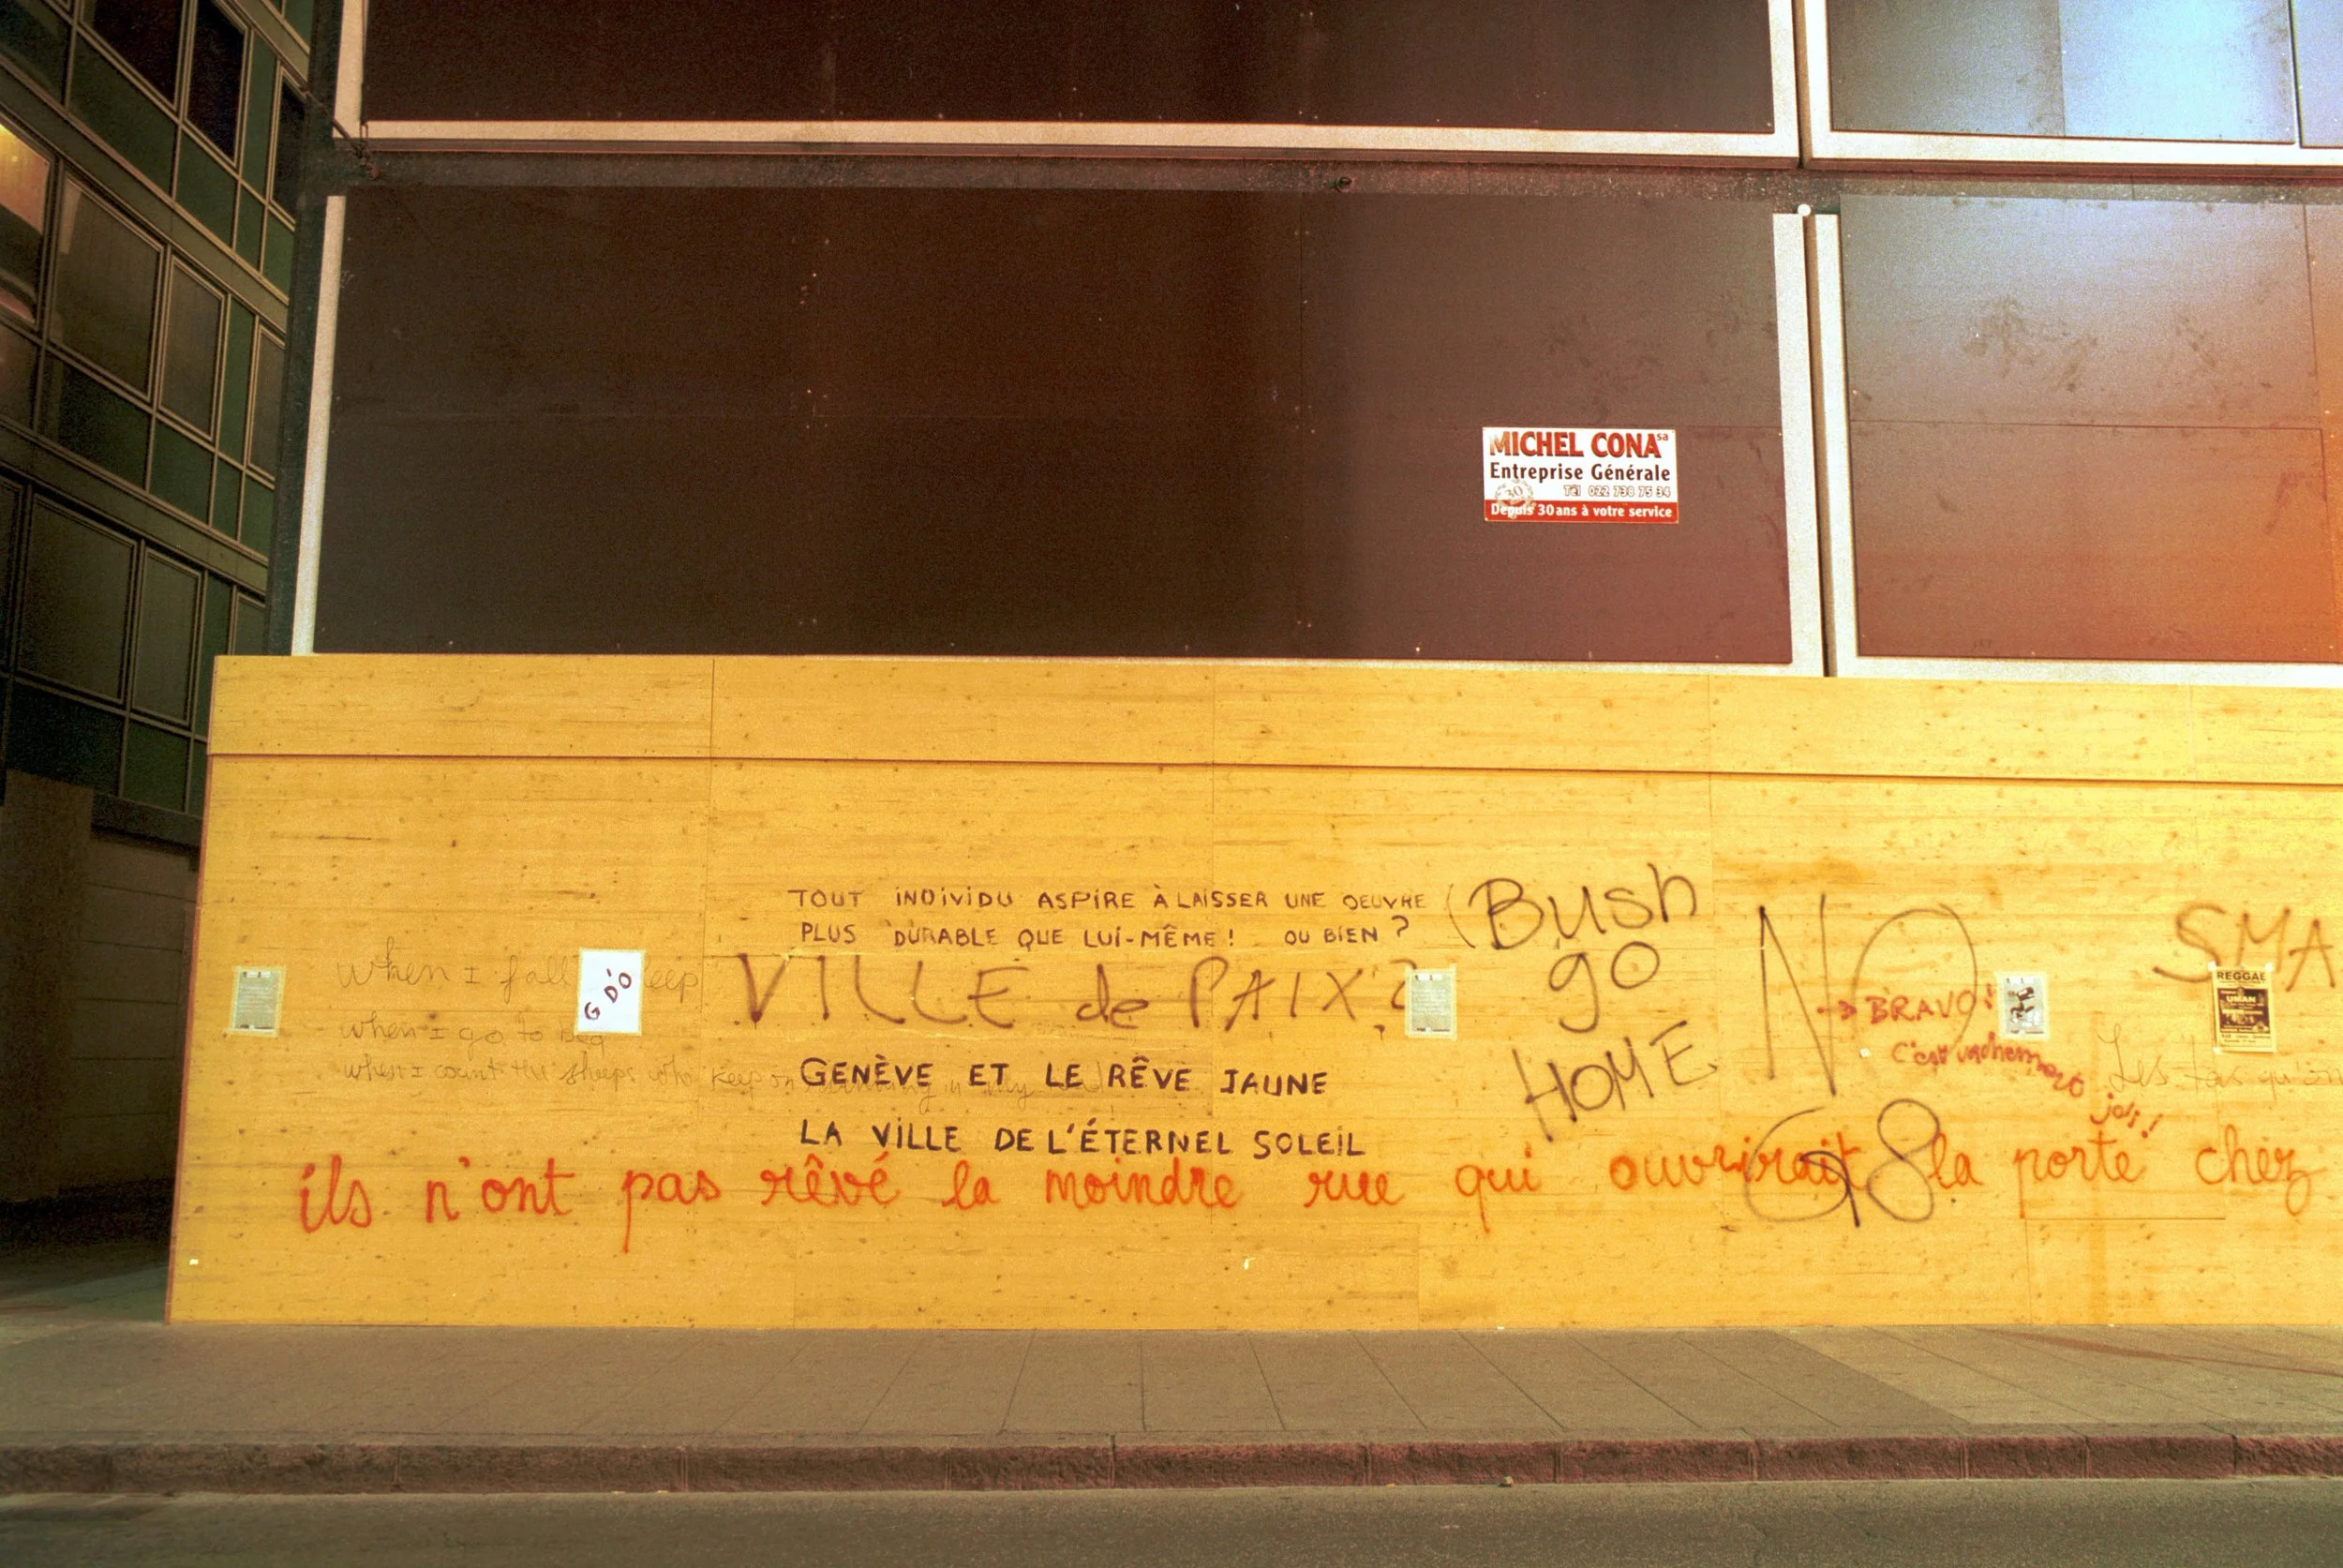 MICHEL CONA sa
Entreprise Générale
30
Tél 022 738 75 34
Depuis 30 ans à votre service
TOUT INDIVIDU ASPIRE À LAISSER UNE OEUVRE
PLUS DURABLE QUE LUI-MÊME ! OU BIEN ?
Bush
go
HOME
NO
SMA
when I fall eep
G DÓ
VILLE de PAIX ?
→ BRAVO !
C'est vachement
joli !
REGGAE
when I go to
when I count the sheeps who keep on in my
GENÈVE ET LE RÊVE JAUNE
LA VILLE DE L'ÉTERNEL SOLEIL
Les
68
ils n'ont pas rêvé la moindre rue qui ouvrirait la porte chez